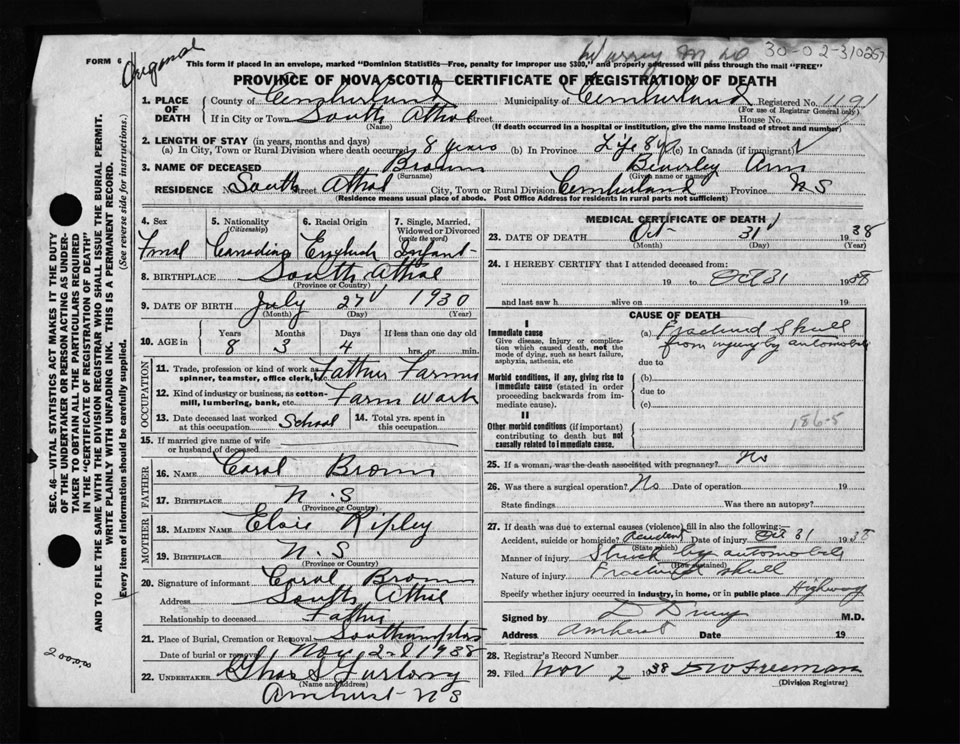 30-02-310257
FORM 6
This form if placed in an envelope, marked "Dominion Statistics—Free, penalty for improper use $300," and properly addressed will pass through the mail "FREE"
PROVINCE OF NOVA SCOTIA CERTIFICATE OF REGISTRATION OF DEATH
1. PLACE OF DEATH
County of Cumberland Municipality of Cumberland Registered No. 1191
(For use of Registrar General only)
If in City or Town South Athol Street House No.
(Name) (If death occurred in a hospital or institution, give the name instead of street and number)
2. LENGTH OF STAY (in years, months and days)
(a) In City, Town or Rural Division where death occurred 8 years (b) In Province Life 8 y (c) In Canada (if immigrant)
3. NAME OF DECEASED Brown Beverley Ann
(Surname) (Given name or names)
RESIDENCE South Athol Street City, Town or Rural Division Cumberland Province N S
(Residence means usual place of abode. Post Office Address for residents in rural parts not sufficient)
4. Sex 5. Nationality (Citizenship) 6. Racial Origin 7. Single, Married, Widowed or Divorced (write the word)
Fmal Canadian English Infant
8. BIRTHPLACE South Athol
(Province or Country)
9. DATE OF BIRTH July 27 1930
(Month) (Day) (Year)
10. AGE in Years Months Days If less than one day old
8 3 4 hrs. or min.
OCCUPATION
11. Trade, profession or kind of work as spinner, teamster, office clerk, etc. Father Farmer
12. Kind of industry or business, as cotton-mill, lumbering, bank, etc. Farm work
13. Date deceased last worked at this occupation School 14. Total yrs. spent in this occupation
15. If married give name of wife or husband of deceased
FATHER
16. NAME Coral Brown
17. BIRTHPLACE N.S
(Province or Country)
MOTHER
18. MAIDEN NAME Elsie Ripley
19. BIRTHPLACE N.S
(Province or Country)
20. Signature of informant Coral Brown
Address South Athol
Relationship to deceased Father
21. Place of Burial, Cremation or Removal Southampton
Date of burial or removal Nov 2nd 1938
22. UNDERTAKER Chas S Furlong
(Name and address)
Amherst N S
MEDICAL CERTIFICATE OF DEATH
23. DATE OF DEATH Oct 31 1938
(Month) (Day) (Year)
24. I HEREBY CERTIFY that I attended deceased from:
19 to Oct 31 1938
and last saw h alive on 19
CAUSE OF DEATH
I
Immediate cause
Give disease, injury or complication which caused death, not the mode of dying, such as heart failure, asphyxia, asthenia, etc
(a) Fractured Skull
from injury by automobile
due to
Morbid conditions, if any, giving rise to immediate cause (stated in order proceeding backwards from immediate cause).
(b)
due to
(c)
II
Other morbid conditions (if important) contributing to death but not causally related to immediate cause.
186-5
25. If a woman, was the death associated with pregnancy? No
26. Was there a surgical operation? No Date of operation 19
State findings Was there an autopsy?
27. If death was due to external causes (violence) fill in also the following:
Accident, suicide or homicide? Accident Date of injury Oct 31 1938
(State which)
Manner of injury Struck by automobile
(How sustained)
Nature of injury Fractured skull
Specify whether injury occurred in industry, in home, or in public place Highway
Signed by M.D.
Address Amherst Date 19
28. Registrar's Record Number
29. Filed Nov 2 1938 Freeman
(Division Registrar)
SEC. 46—VITAL STATISTICS ACT MAKES IT THE DUTY
OF THE UNDERTAKER OR PERSON ACTING AS UNDER-
TAKER TO OBTAIN ALL THE PARTICULARS REQUIRED
IN THE "CERTIFICATE OF REGISTRATION OF DEATH"
AND TO FILE THE SAME WITH THE DIVISION REGISTRAR WHO SHALL ISSUE THE BURIAL PERMIT.
WRITE PLAINLY WITH UNFADING INK. THIS IS A PERMANENT RECORD.
Every item of information should be carefully supplied. (See reverse side for instructions.)